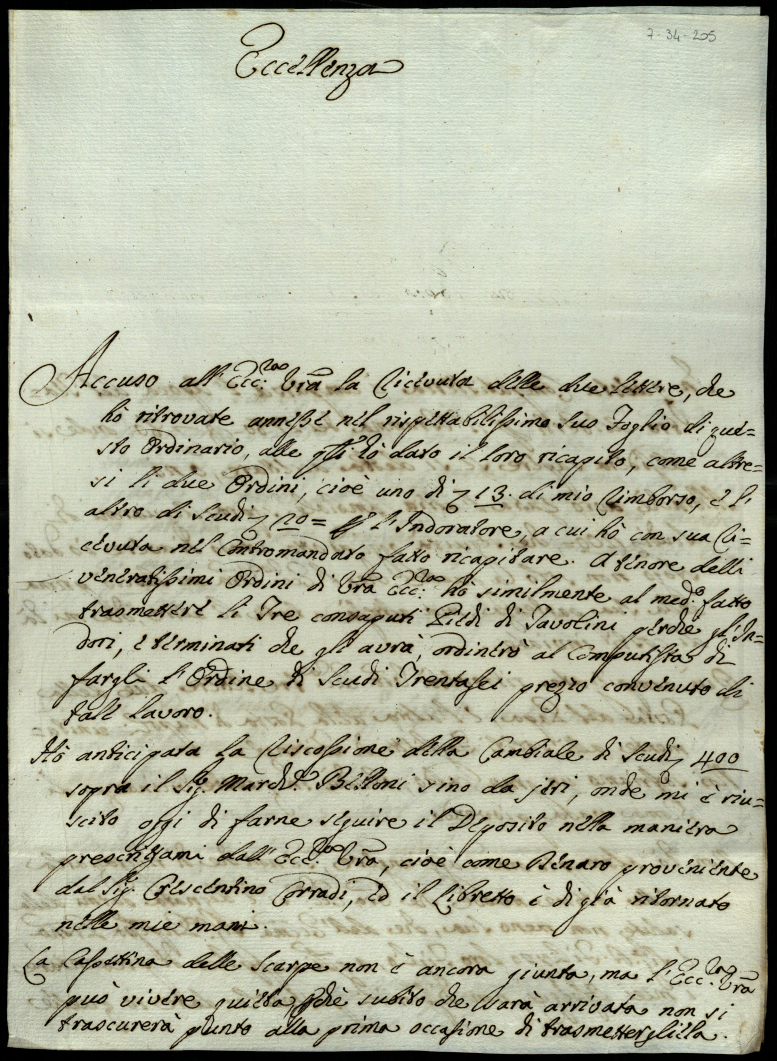 7-34-205
Eccellenza
Accuso all'Ecc:za Vrã la ricevuta delle due lettere, che
hò ritrovate annesse nel rispettabilissimo suo Foglio di que=
sto Ordinario, alle qli hò dato il loro ricapito, come altre=
si li due Ordini, cioè uno di 13. di mio rimborso, e l'
altro di Scudi 20= l'Indoratore, a cui hò con sua ri=
cevuta nel Contromandato fatto ricapitare. A tenore delli
veneratissimi Ordini di Vrã Ecc:za hò similmente al med:o fatto
trasmettere li Tre consaputi Piedi di Tavolini perche gl'In=
dori, e terminati che gli avrà, ordinerò al Computista di
fargli l'Ordine di Scudi Trentasei prezzo convenuto di
tall lavoro.
Hò anticipata la riscossione della Cambiale di Scudi 400
sopra il Sig. March. Belloni sino da jeri, onde mi è riu=
scito oggi di farne seguire il Deposito nella maniera
prescrittami dall'Ecc:za Vrã, cioè come Denaro proveniente
dal Sig. Crescentino Corradi, ed il Libretto è di già ritornato
nelle mie mani.
La Cassettina delle Scarpe non è ancora giunta, ma l'Ecc:za Vrã
può vivere quieta che subito che sarà arrivata non si
trascurerà punto alla prima occasione di trasmettergliela.